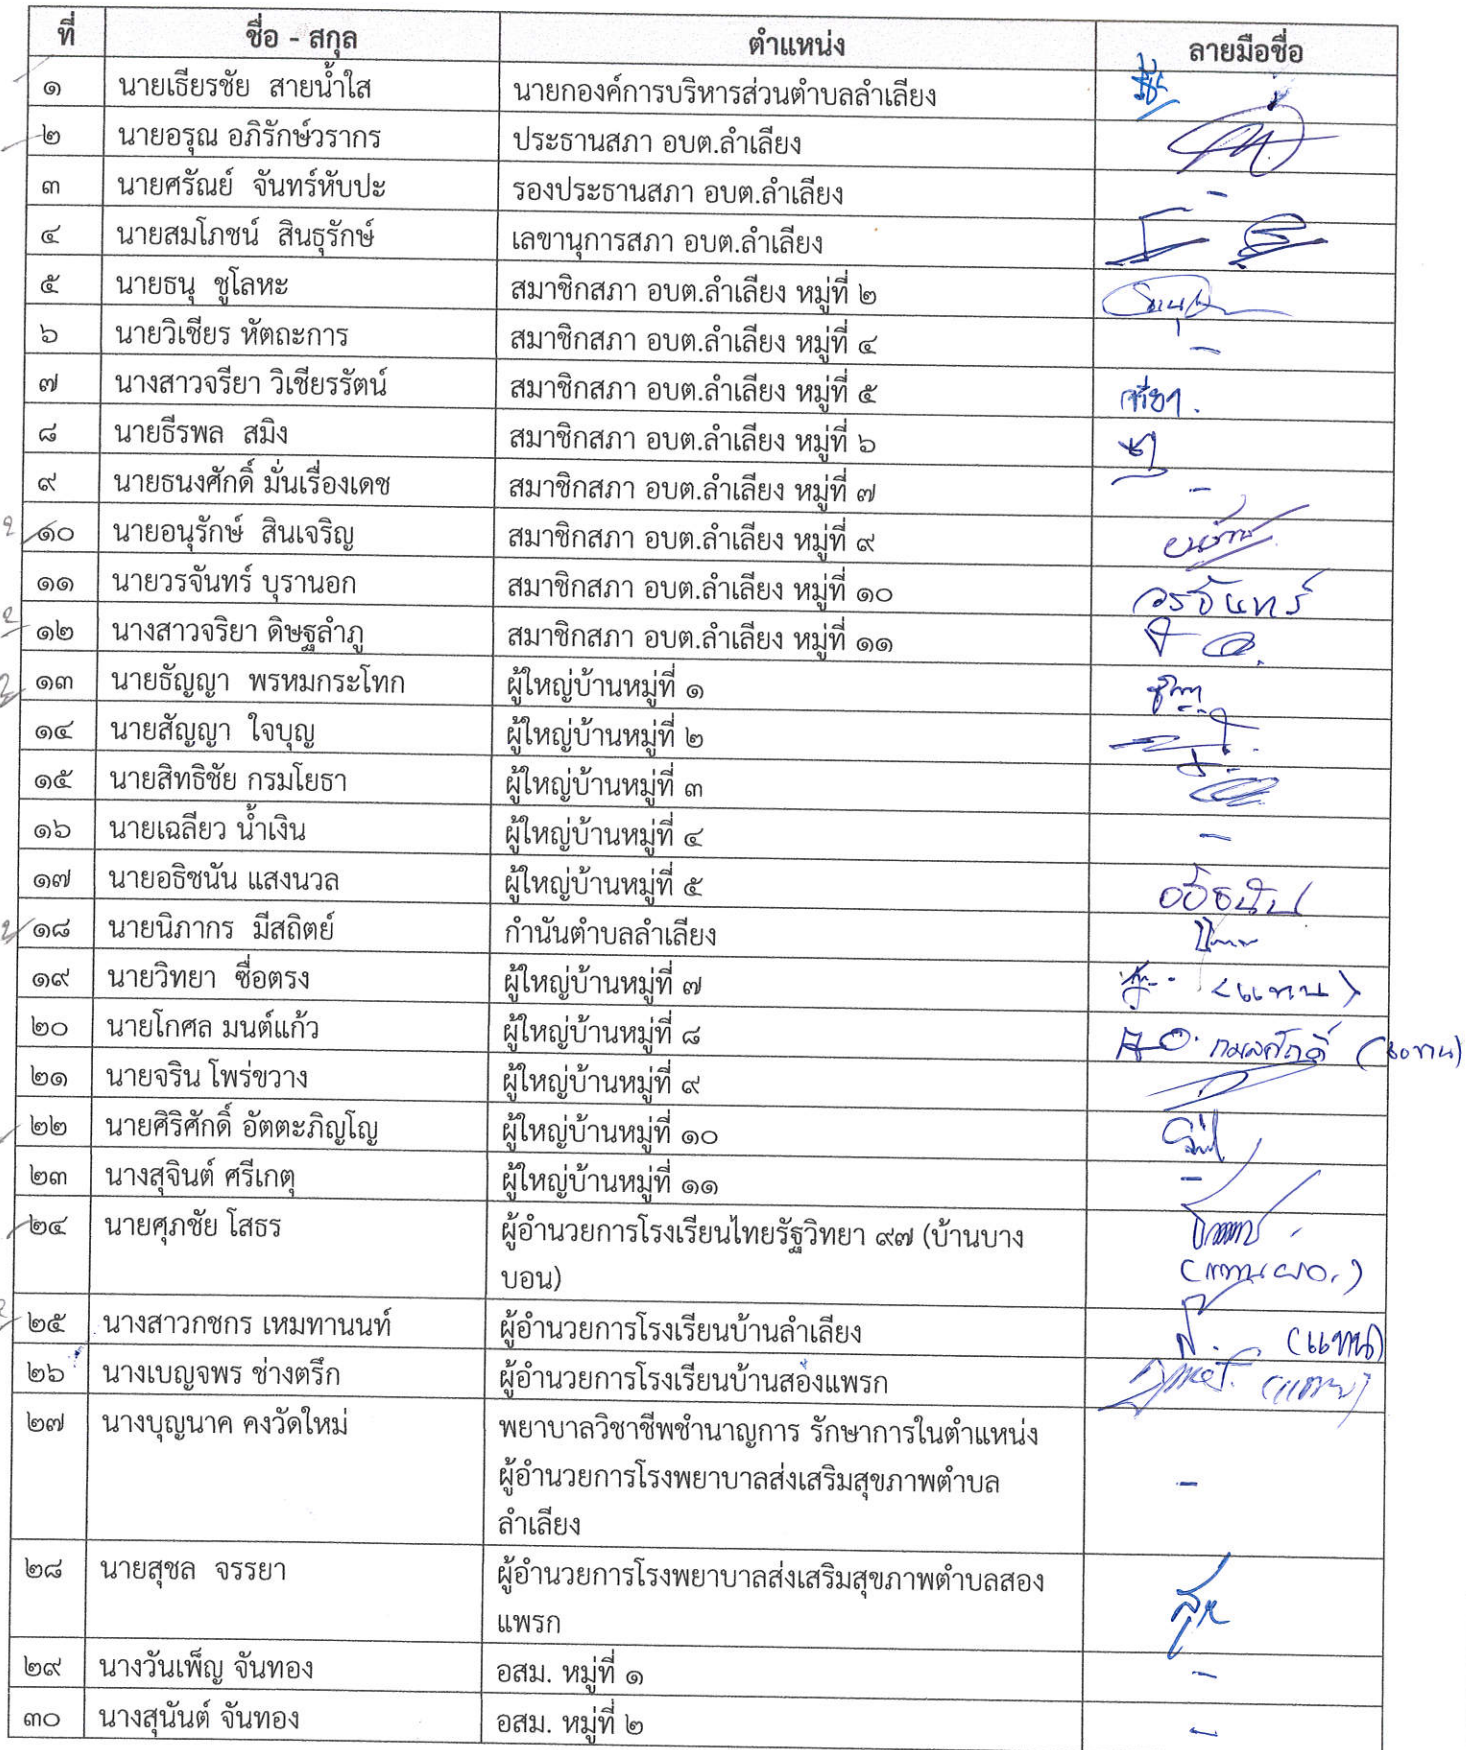 ที่ ชื่อ - สกุล ตำแหน่ง ลายมือชื่อ
๑ นายเธียรชัย สายน้ำใส นายกองค์การบริหารส่วนตำบลลำเลียง
๒ นายอรุณ อภิรักษ์วรากร ประธานสภา อบต.ลำเลียง
๓ นายศรัณย์ จันทร์หับปะ รองประธานสภา อบต.ลำเลียง -
๔ นายสมโภชน์ สินธุรักษ์ เลขานุการสภา อบต.ลำเลียง
๕ นายธนุ ชูโลหะ สมาชิกสภา อบต.ลำเลียง หมู่ที่ ๒
๖ นายวิเชียร หัตถะการ สมาชิกสภา อบต.ลำเลียง หมู่ที่ ๔ -
๗ นางสาวจรียา วิเชียรรัตน์ สมาชิกสภา อบต.ลำเลียง หมู่ที่ ๕ จรียา.
๘ นายธีรพล สมิง สมาชิกสภา อบต.ลำเลียง หมู่ที่ ๖
๙ นายธนงศักดิ์ มั่นเรื่องเดช สมาชิกสภา อบต.ลำเลียง หมู่ที่ ๗ -
๑๐ นายอนุรักษ์ สินเจริญ สมาชิกสภา อบต.ลำเลียง หมู่ที่ ๙
๑๑ นายวรจันทร์ บุรานอก สมาชิกสภา อบต.ลำเลียง หมู่ที่ ๑๐ วรจันทร์
๑๒ นางสาวจริยา ดิษฐลำภู สมาชิกสภา อบต.ลำเลียง หมู่ที่ ๑๑
๑๓ นายธัญญา พรหมกระโทก ผู้ใหญ่บ้านหมู่ที่ ๑
๑๔ นายสัญญา ใจบุญ ผู้ใหญ่บ้านหมู่ที่ ๒
๑๕ นายสิทธิชัย กรมโยธา ผู้ใหญ่บ้านหมู่ที่ ๓
๑๖ นายเฉลียว น้ำเงิน ผู้ใหญ่บ้านหมู่ที่ ๔ -
๑๗ นายอธิชนัน แสงนวล ผู้ใหญ่บ้านหมู่ที่ ๕
๑๘ นายนิภากร มีสถิตย์ กำนันตำบลลำเลียง
๑๙ นายวิทยา ซื่อตรง ผู้ใหญ่บ้านหมู่ที่ ๗ (แทน)
๒๐ นายโกศล มนต์แก้ว ผู้ใหญ่บ้านหมู่ที่ ๘ กมลศักดิ์ (แทน)
๒๑ นายจริน โพร่ขวาง ผู้ใหญ่บ้านหมู่ที่ ๙
๒๒ นายศิริศักดิ์ อัตตะภิญโญ ผู้ใหญ่บ้านหมู่ที่ ๑๐
๒๓ นางสุจินต์ ศรีเกตุ ผู้ใหญ่บ้านหมู่ที่ ๑๑ -
๒๔ นายศุภชัย โสธร ผู้อำนวยการโรงเรียนไทยรัฐวิทยา ๙๗ (บ้านบาง
บอน) (แทน ผอ.)
๒๕ นางสาวกชกร เหมทานนท์ ผู้อำนวยการโรงเรียนบ้านลำเลียง (แทน)
๒๖ นางเบญจพร ช่างตรึก ผู้อำนวยการโรงเรียนบ้านสองแพรก (แทน)
๒๗ นางบุญนาค คงวัดใหม่ พยาบาลวิชาชีพชำนาญการ รักษาการในตำแหน่ง
ผู้อำนวยการโรงพยาบาลส่งเสริมสุขภาพตำบล -
ลำเลียง
๒๘ นายสุชล จรรยา ผู้อำนวยการโรงพยาบาลส่งเสริมสุขภาพตำบลสอง
แพรก
๒๙ นางวันเพ็ญ จันทอง อสม. หมู่ที่ ๑ -
๓๐ นางสุนันต์ จันทอง อสม. หมู่ที่ ๒ -